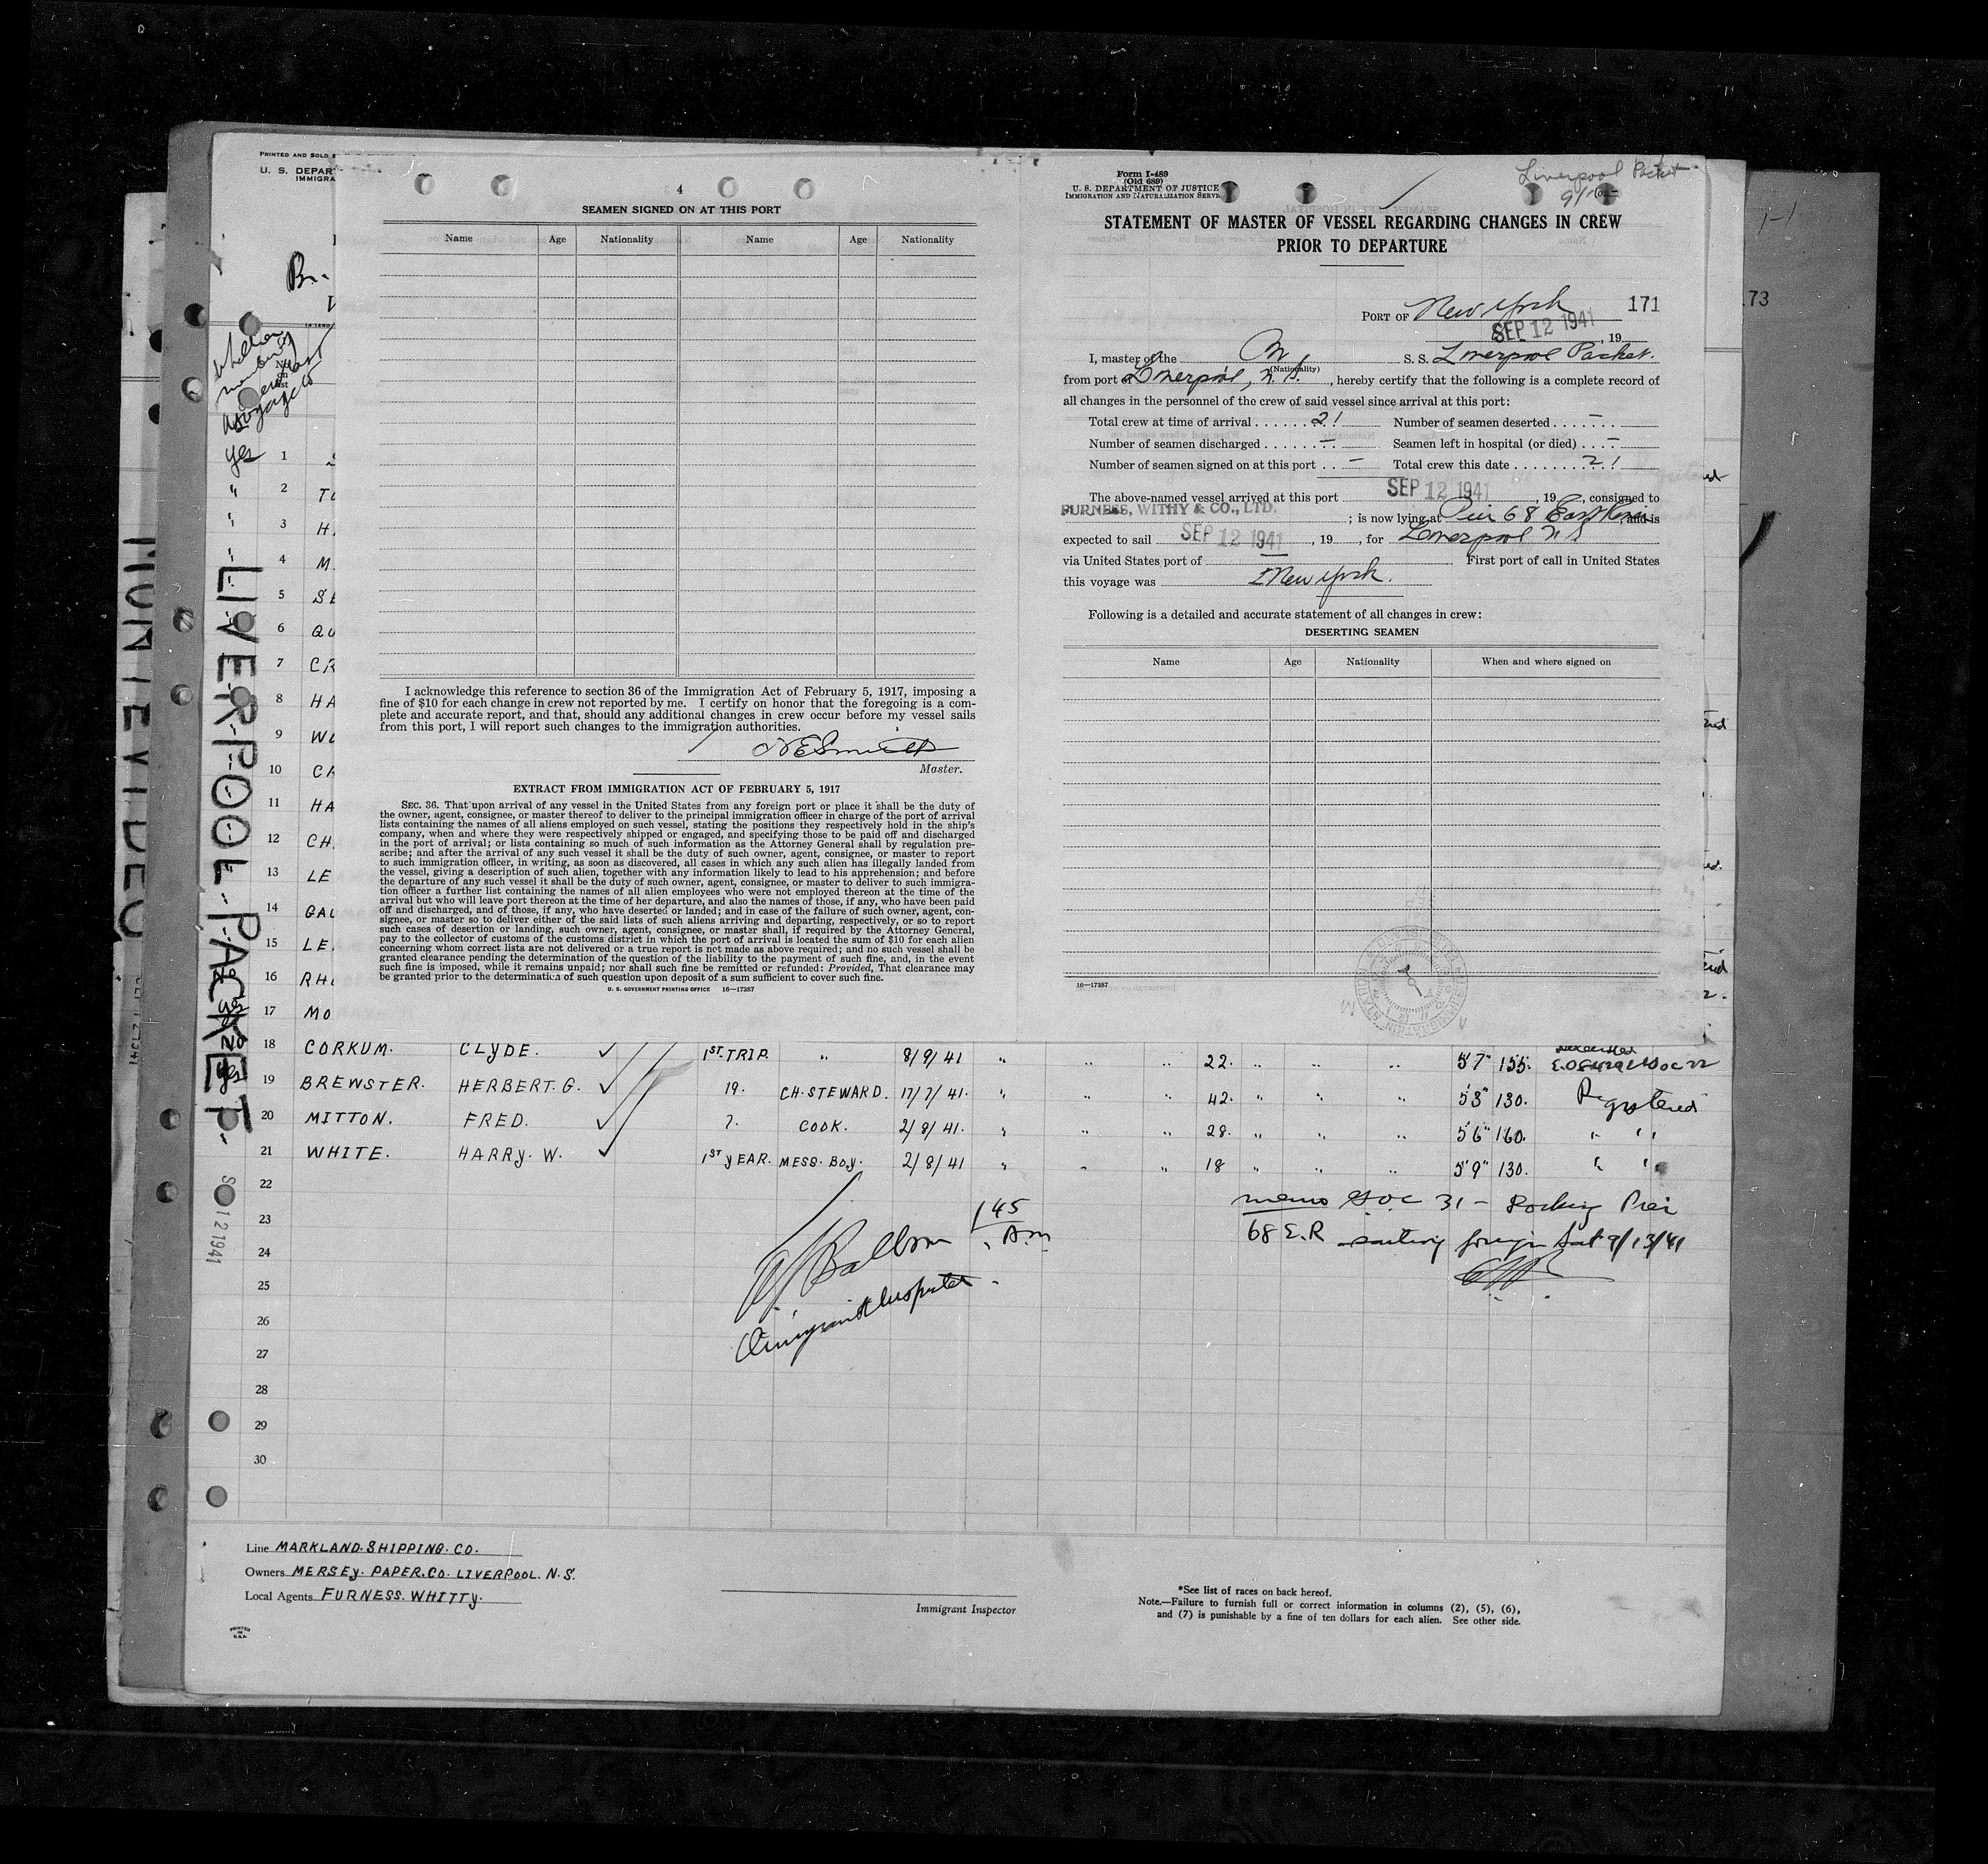 PRINTED AND SOLD
U. S. DEPAR
IMMIGRA
Br.
yes
1
2 TO
3 H
4 M
5 SE
6 QU
7 CR
8 HA
9 WO
10 CA
11 HA
12 CH.
13 LE
14 GAU
15 LE.
16 RHO
17 MO
LIVERPOOL PACKET
MONTEVIDEO
4
SEAMEN SIGNED ON AT THIS PORT
Name Age Nationality Name Age Nationality
I acknowledge this reference to section 36 of the Immigration Act of February 5, 1917, imposing a
fine of $10 for each change in crew not reported by me. I certify on honor that the foregoing is a com-
plete and accurate report, and that, should any additional changes in crew occur before my vessel sails
from this port, I will report such changes to the immigration authorities.
NE Smith
Master.
EXTRACT FROM IMMIGRATION ACT OF FEBRUARY 5, 1917
SEC. 36. That upon arrival of any vessel in the United States from any foreign port or place it shall be the duty of
the owner, agent, consignee, or master thereof to deliver to the principal immigration officer in charge of the port of arrival
lists containing the names of all aliens employed on such vessel, stating the positions they respectively hold in the ship's
company, when and where they were respectively shipped or engaged, and specifying those to be paid off and discharged
in the port of arrival; or lists containing so much of such information as the Attorney General shall by regulation pre-
scribe; and after the arrival of any such vessel it shall be the duty of such owner, agent, consignee, or master to report
to such immigration officer, in writing, as soon as discovered, all cases in which any such alien has illegally landed from
the vessel, giving a description of such alien, together with any information likely to lead to his apprehension; and before
the departure of any such vessel it shall be the duty of such owner, agent, consignee, or master to deliver to such immigra-
tion officer a further list containing the names of all alien employees who were not employed thereon at the time of the
arrival but who will leave port thereon at the time of her departure, and also the names of those, if any, who have been paid
off and discharged, and of those, if any, who have deserted or landed; and in case of the failure of such owner, agent, con-
signee, or master so to deliver either of the said lists of such aliens arriving and departing, respectively, or so to report
such cases of desertion or landing, such owner, agent, consignee, or master shall, if required by the Attorney General,
pay to the collector of customs of the customs district in which the port of arrival is located the sum of $10 for each alien
concerning whom correct lists are not delivered or a true report is not made as above required; and no such vessel shall be
granted clearance pending the determination of the question of the liability to the payment of such fine, and, in the event
such fine is imposed, while it remains unpaid; nor shall such fine be remitted or refunded: Provided, That clearance may
be granted prior to the determination of such question upon deposit of a sum sufficient to cover such fine.
U. S. GOVERNMENT PRINTING OFFICE 16—17387
Form I-489
(Old 689)
U. S. DEPARTMENT OF JUSTICE
IMMIGRATION AND NATURALIZATION SERV
Liverpool Packet
STATEMENT OF MASTER OF VESSEL REGARDING CHANGES IN CREW
PRIOR TO DEPARTURE
PORT OF New York 171
SEP 12 1941, 19
I, master of the Br (Nationality) S. S. Liverpool Packet.
from port of Liverpool, N.S., hereby certify that the following is a complete record of
all changes in the personnel of the crew of said vessel since arrival at this port:
Total crew at time of arrival 21 Number of seamen deserted –
Number of seamen discharged – Seamen left in hospital (or died) –
Number of seamen signed on at this port – Total crew this date 21
The above-named vessel arrived at this port SEP 12 1941, 19, consigned to
FURNESS, WITHY & CO., LTD.; is now lying at Pier 68 East River, and is
expected to sail SEP 12 1941, 19, for Liverpool N S
via United States port of First port of call in United States
this voyage was New York.
Following is a detailed and accurate statement of all changes in crew:
DESERTING SEAMEN
Name Age Nationality When and where signed on
16—17387
73
18 CORKUM. CLYDE. 1ST. TRIP. " 8/9/41 " " " 22. " " " 5'7" 155.
19 BREWSTER. HERBERT. G. 19. CH. STEWARD. 17/7/41. " " " 42. " " " 5'8" 130. Registered
20 MITTON. FRED. 7. COOK. 2/8/41. " " " 28. " " " 5'6" 160. " "
21 WHITE. HARRY. W. 1ST YEAR. MESS. BOY. 2/8/41 " " " 18 " " " 5'9" 130. " "
22
23
24
25
26
27
28
29
30
1 45
A.M
Immigrant Inspector
memo 31 – Docking Pier
68 E.R sailing foreign Sat 9/13/41
Line MARKLAND. SHIPPING. CO.
Owners MERSEY. PAPER. CO. LIVERPOOL. N. S.
Local Agents FURNESS. WHITTY.
Immigrant Inspector
*See list of races on back hereof.
Note.—Failure to furnish full or correct information in columns (2), (5), (6),
and (7) is punishable by a fine of ten dollars for each alien. See other side.
PRINTED IN U.S.A.